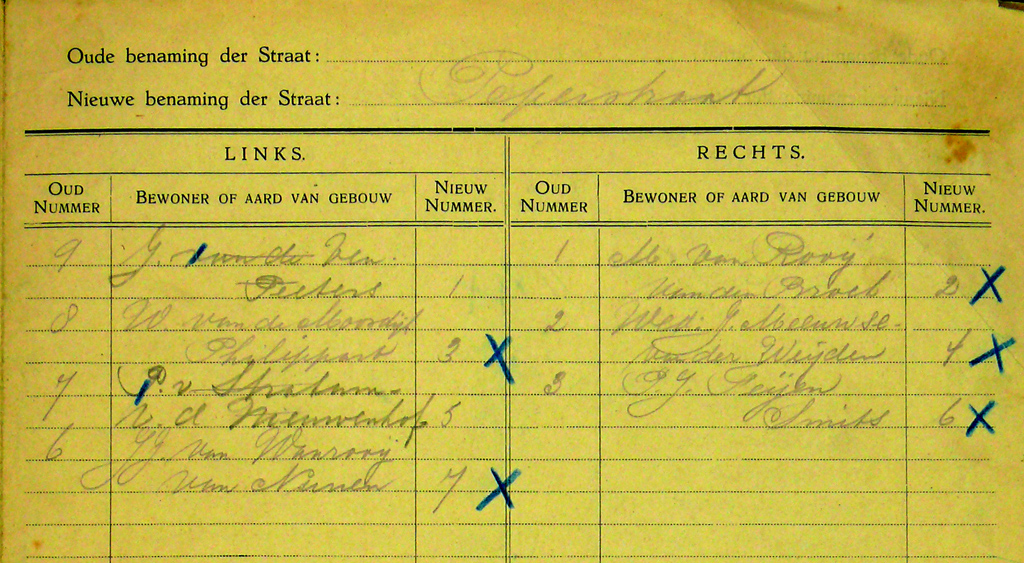 Oude benaming der Straat:
Nieuwe benaming der Straat: Peperstraat
LINKS. RECHTS.
OUD NUMMER BEWONER OF AARD VAN GEBOUW NIEUW NUMMER. OUD NUMMER BEWONER OF AARD VAN GEBOUW NIEUW NUMMER.
9 G. van de Ven. 1 M. van Rooij
Peeters 1 van den Broek 2 X
8 W. van de Moordijk 2 Wed. J. Meeuwse.
Philippart 3 X van der Weijden 4 X
7 P. v. Stratum 3 P.J. Feijen
v. d. Nieuwenhof 5 Smits 6 X
6 van Wanrooij
van Nunen 7 X